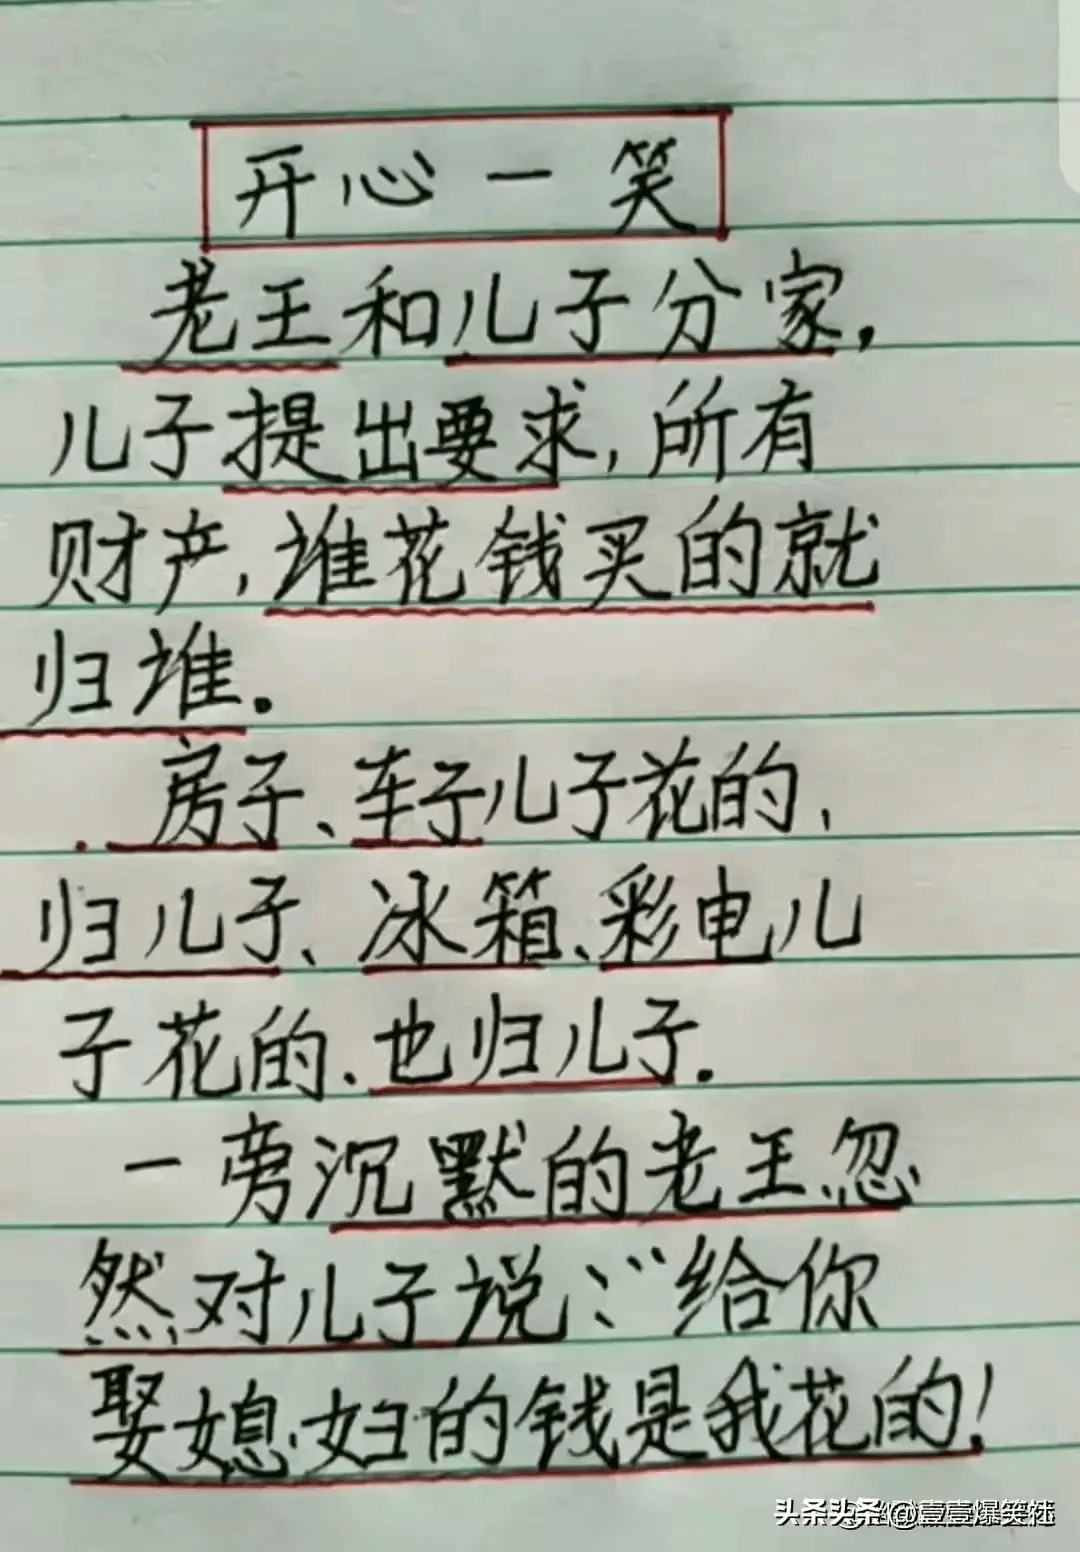 开心一笑
老王和儿子分家,
儿子提出要求,所有
财产,谁花钱买的就
归谁.
房子、车子儿子花的,
归儿子、冰箱、彩电儿
子花的、也归儿子.
一旁沉默的老王、忽
然对儿子说:"给你
娶媳妇的钱是我花的!
头条头条 @壹壹爆笑